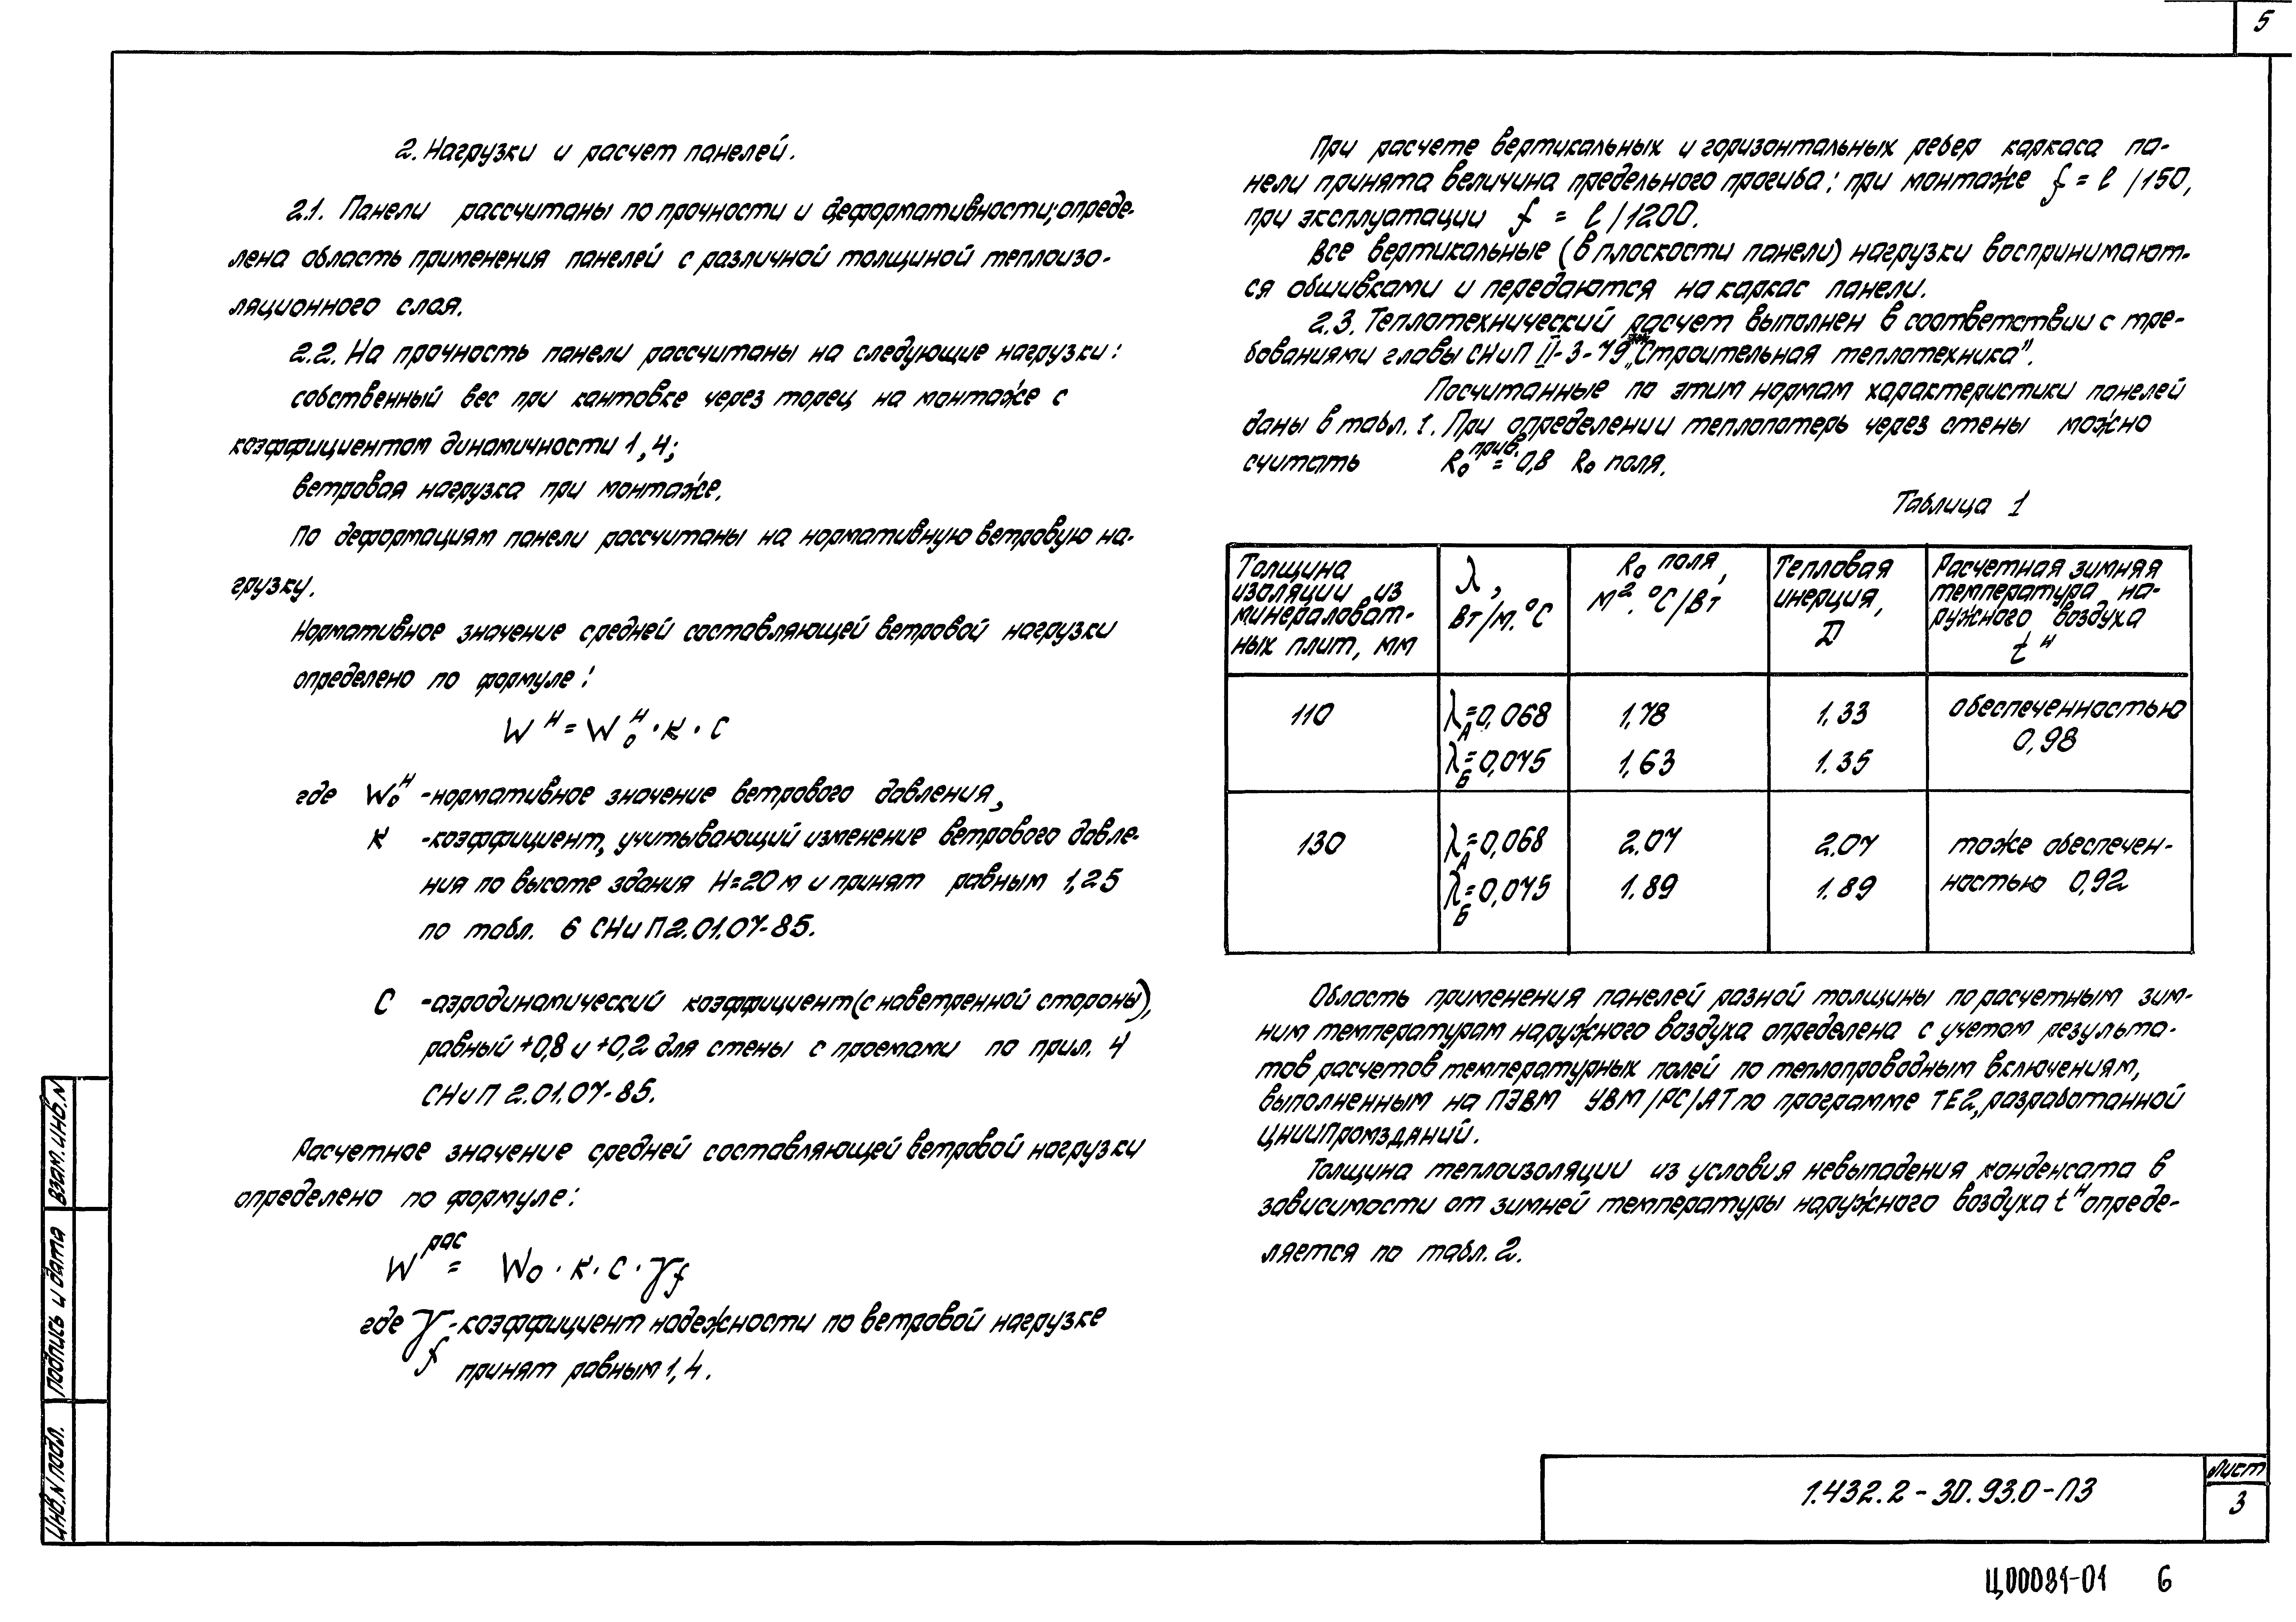 5
2. Нагрузки и расчет панелей.
2.1. Панели рассчитаны по прочности и деформативности; опреде-
лена область применения панелей с различной толщиной теплоизо-
ляционного слоя.
2.2. На прочность панели рассчитаны на следующие нагрузки:
собственный вес при кантовке через торец на монтаже с
коэффициентом динамичности 1,4;
ветровая нагрузка при монтаже.
По деформациям панели рассчитаны на нормативную ветровую на-
грузку.
Нормативное значение средней составляющей ветровой нагрузки
определено по формуле:
Wᴴ = W₀ᴴ · К · С
где W₀ᴴ - нормативное значение ветрового давления,
К - коэффициент, учитывающий изменение ветрового давле-
ния по высоте здания Н=20м и принят равным 1,25
по табл. 6 СНиП 2.01.07-85.
С - аэродинамический коэффициент (с наветренной стороны),
равный +0,8 и +0,2 для стены с проемами по прил. 4
СНиП 2.01.07-85.
Расчетное значение средней составляющей ветровой нагрузки
определено по формуле:
W рас = W₀ · К · С · γf
где γf - коэффициент надежности по ветровой нагрузке
принят равным 1,4.
При расчете вертикальных и горизонтальных ребер каркаса па-
нели принята величина предельного прогиба: при монтаже f = l/150,
при эксплуатации f = l/1200.
Все вертикальные (в плоскости панели) нагрузки воспринимают-
ся обшивками и передаются на каркас панели.
2.3. Теплотехнический расчет выполнен в соответствии с тре-
бованиями главы СНиП II-3-79** „Строительная теплотехника".
Посчитанные по этим нормам характеристики панелей
даны в табл. 1. При определении теплопотерь через стены можно
считать R₀ прив. = 0,8 R₀ поля.
Таблица 1
Толщина изоляции из минераловат-ных плит, мм | λ, Вт/м.°С | R₀ поля, м².°С/Вт | Тепловая инерция, D | Расчетная зимняя температура на-ружного воздуха tᴴ
110 | λА=0,068 | 1,78 | 1,33 | обеспеченностью
λБ=0,075 | 1,63 | 1.35 | 0,98
130 | λА=0,068 | 2.07 | 2.07 | тоже обеспечен-
λБ=0,075 | 1.89 | 1.89 | ностью 0,92
Область применения панелей разной толщины по расчетным зим-
ним температурам наружного воздуха определена с учетом результа-
тов расчетов температурных полей по теплопроводным включениям,
выполненным на ПЭВМ УВМ/РС/АТ по программе ТЕ2, разработанной
ЦНИИПромзданий.
Толщина теплоизоляции из условия невыпадения конденсата в
зависимости от зимней температуры наружного воздуха tᴴ опреде-
ляется по табл. 2.
Инв. N подл.
Подпись и дата
Взам. инв. N
1.432.2-30.93.0-ПЗ
Лист
3
Ц00081-01 6